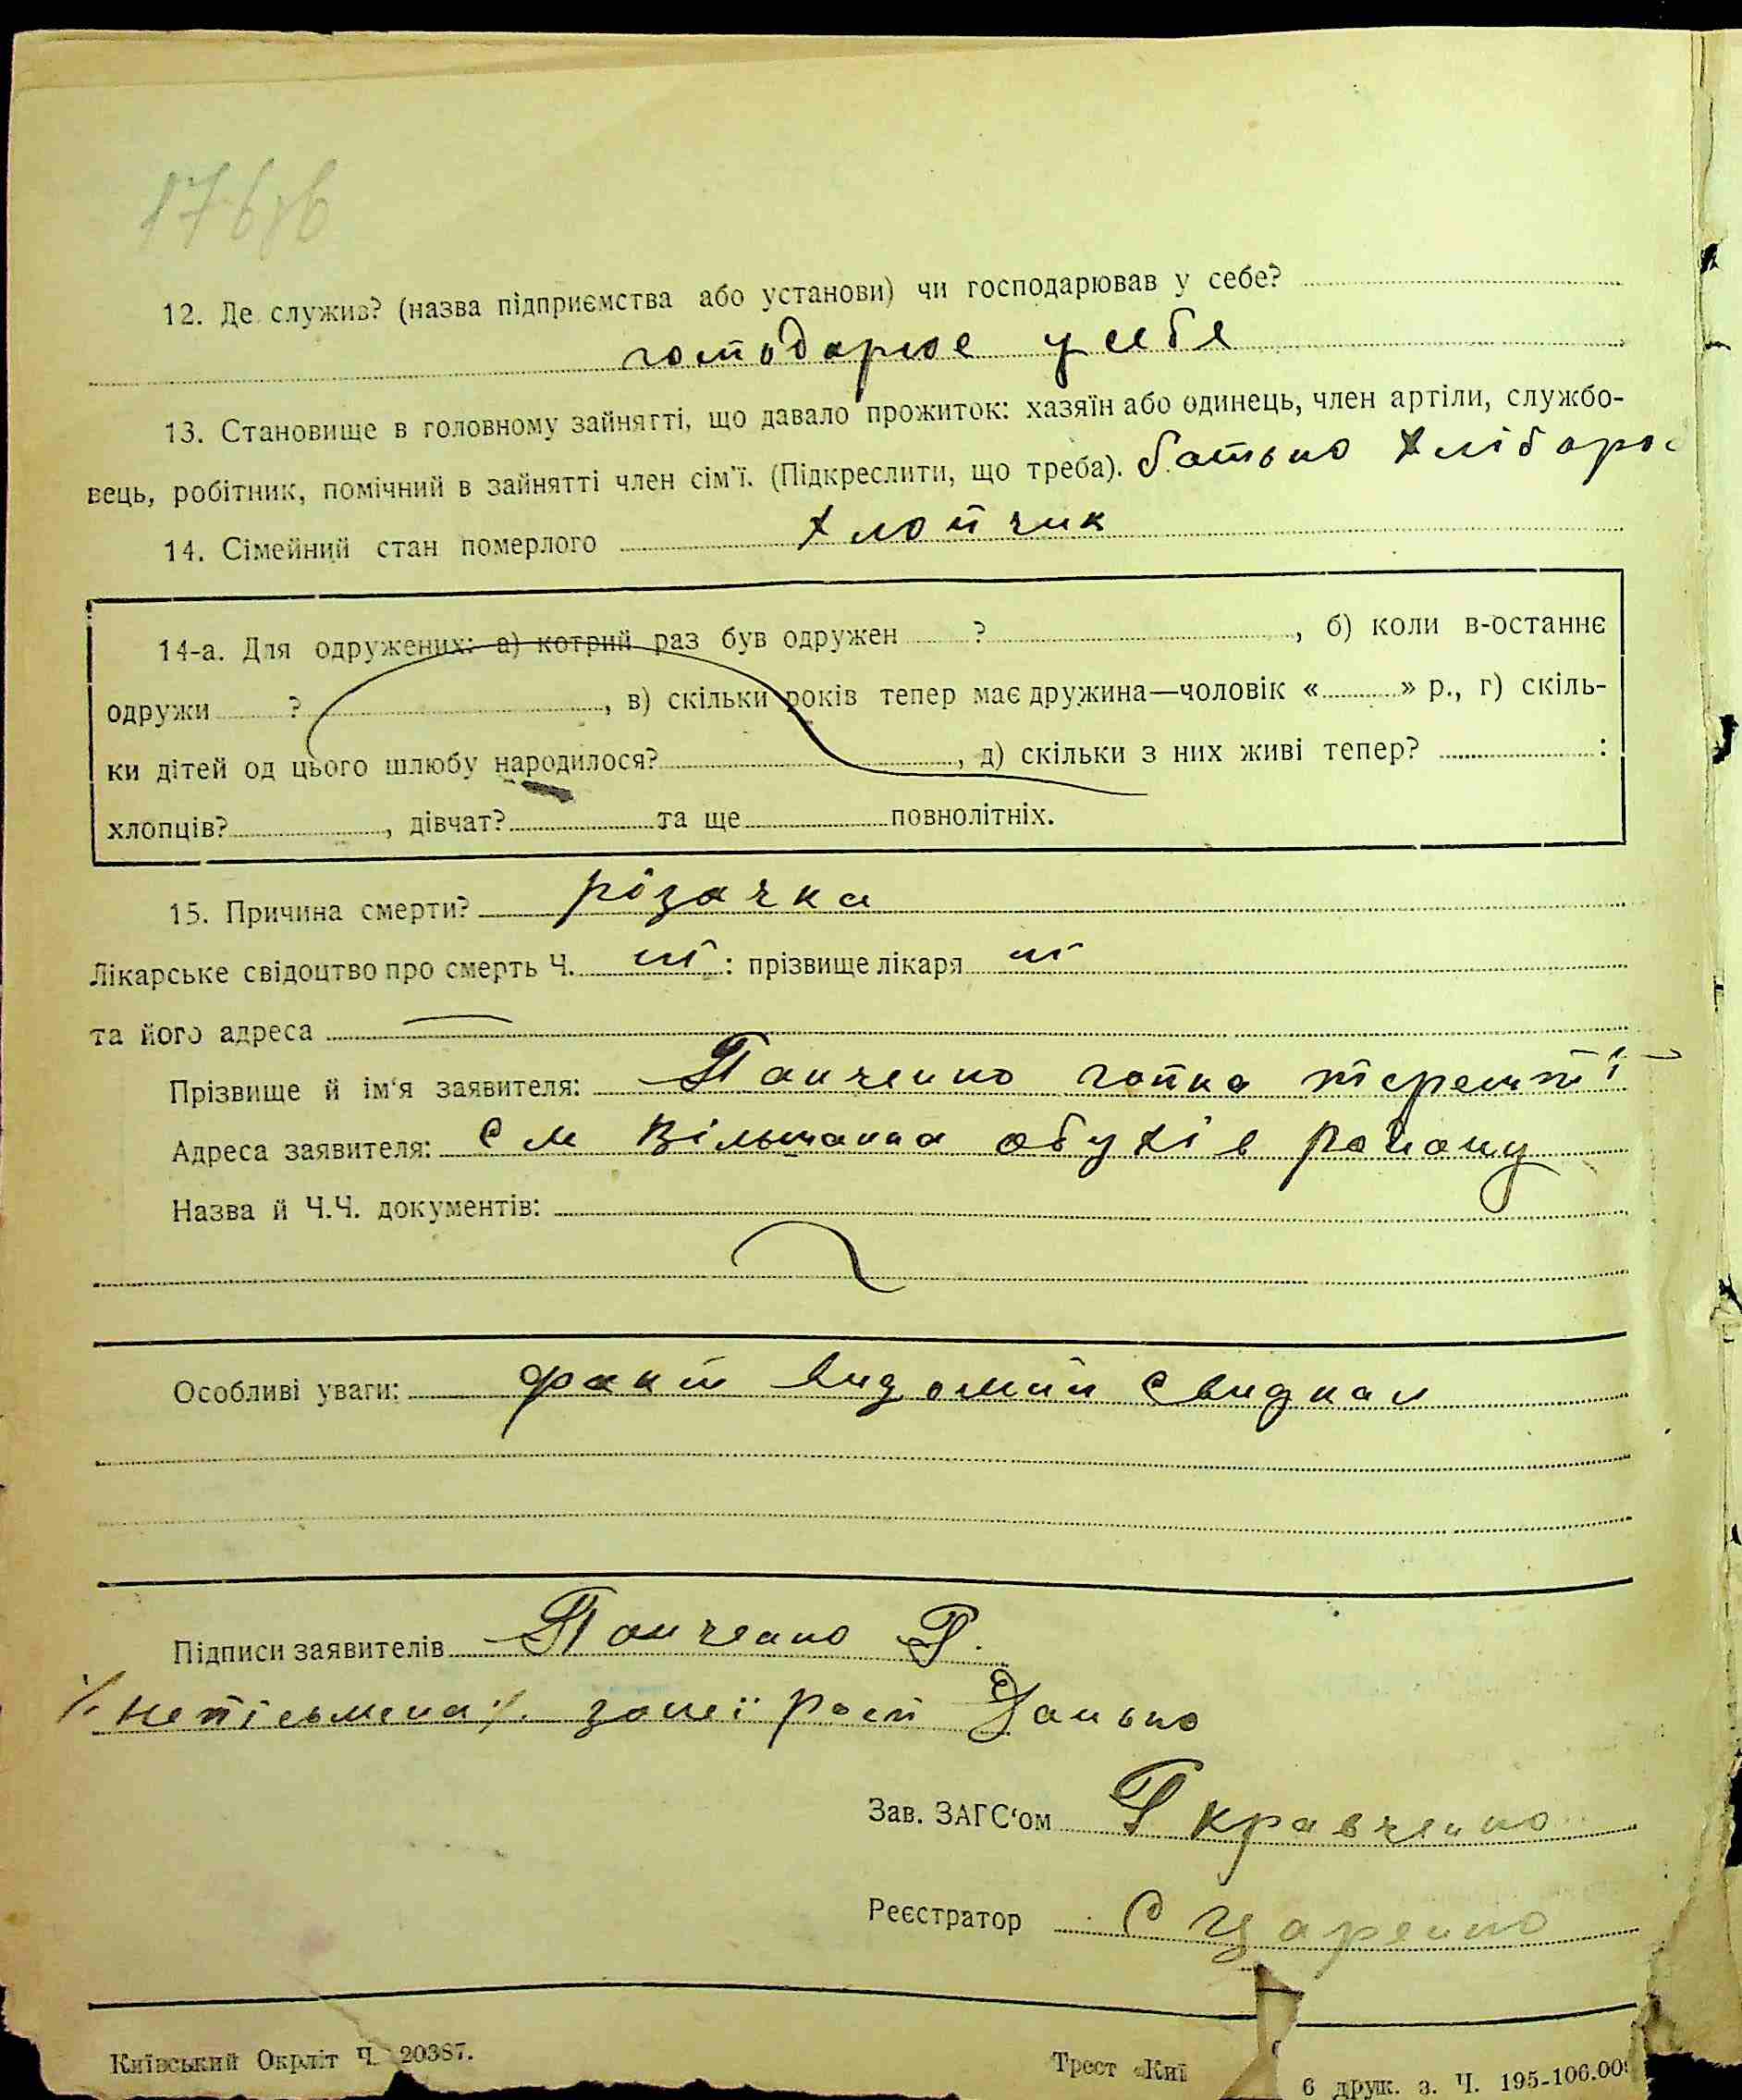 176зв
12. Де служив? (назва підприємства або установи) чи господарював у себе?
господарює у себе
13. Становище в головному зайнятті, що давало прожиток: хазяїн або одинець, член артіли, службо-
вець, робітник, помічний в зайнятті член сім'ї. (Підкреслити, що треба). батько хлібороб
14. Сімейний стан померлого хлопчик
14-а. Для одружених: а) котрий раз був одружен ?, б) коли в-останнє
одружи ?, в) скільки років тепер має дружина—чоловік « » р., г) скіль-
ки дітей од цього шлюбу народилося?, д) скільки з них живі тепер? :
хлопців?, дівчат? та ще повнолітніх.
15. Причина смерти? різачка
Лікарське свідоцтво про смерть Ч. ні : прізвище лікаря ні
та його адреса —
Прізвище й ім'я заявителя: Панченко
Адреса заявителя: с м Вільшанка обухів району
Назва й Ч.Ч. документів:
Особливі уваги: факт видомий свидкам
Підписи заявителів Панченко Г.
/. непісьмена /. за неї расп Данько
Зав. ЗАГС'ом Г Кравченко
Реєстратор С Царенко
Київський Окрліт Ч. 20387.
Трест «Киї
6 друк. з. Ч. 195-106.00